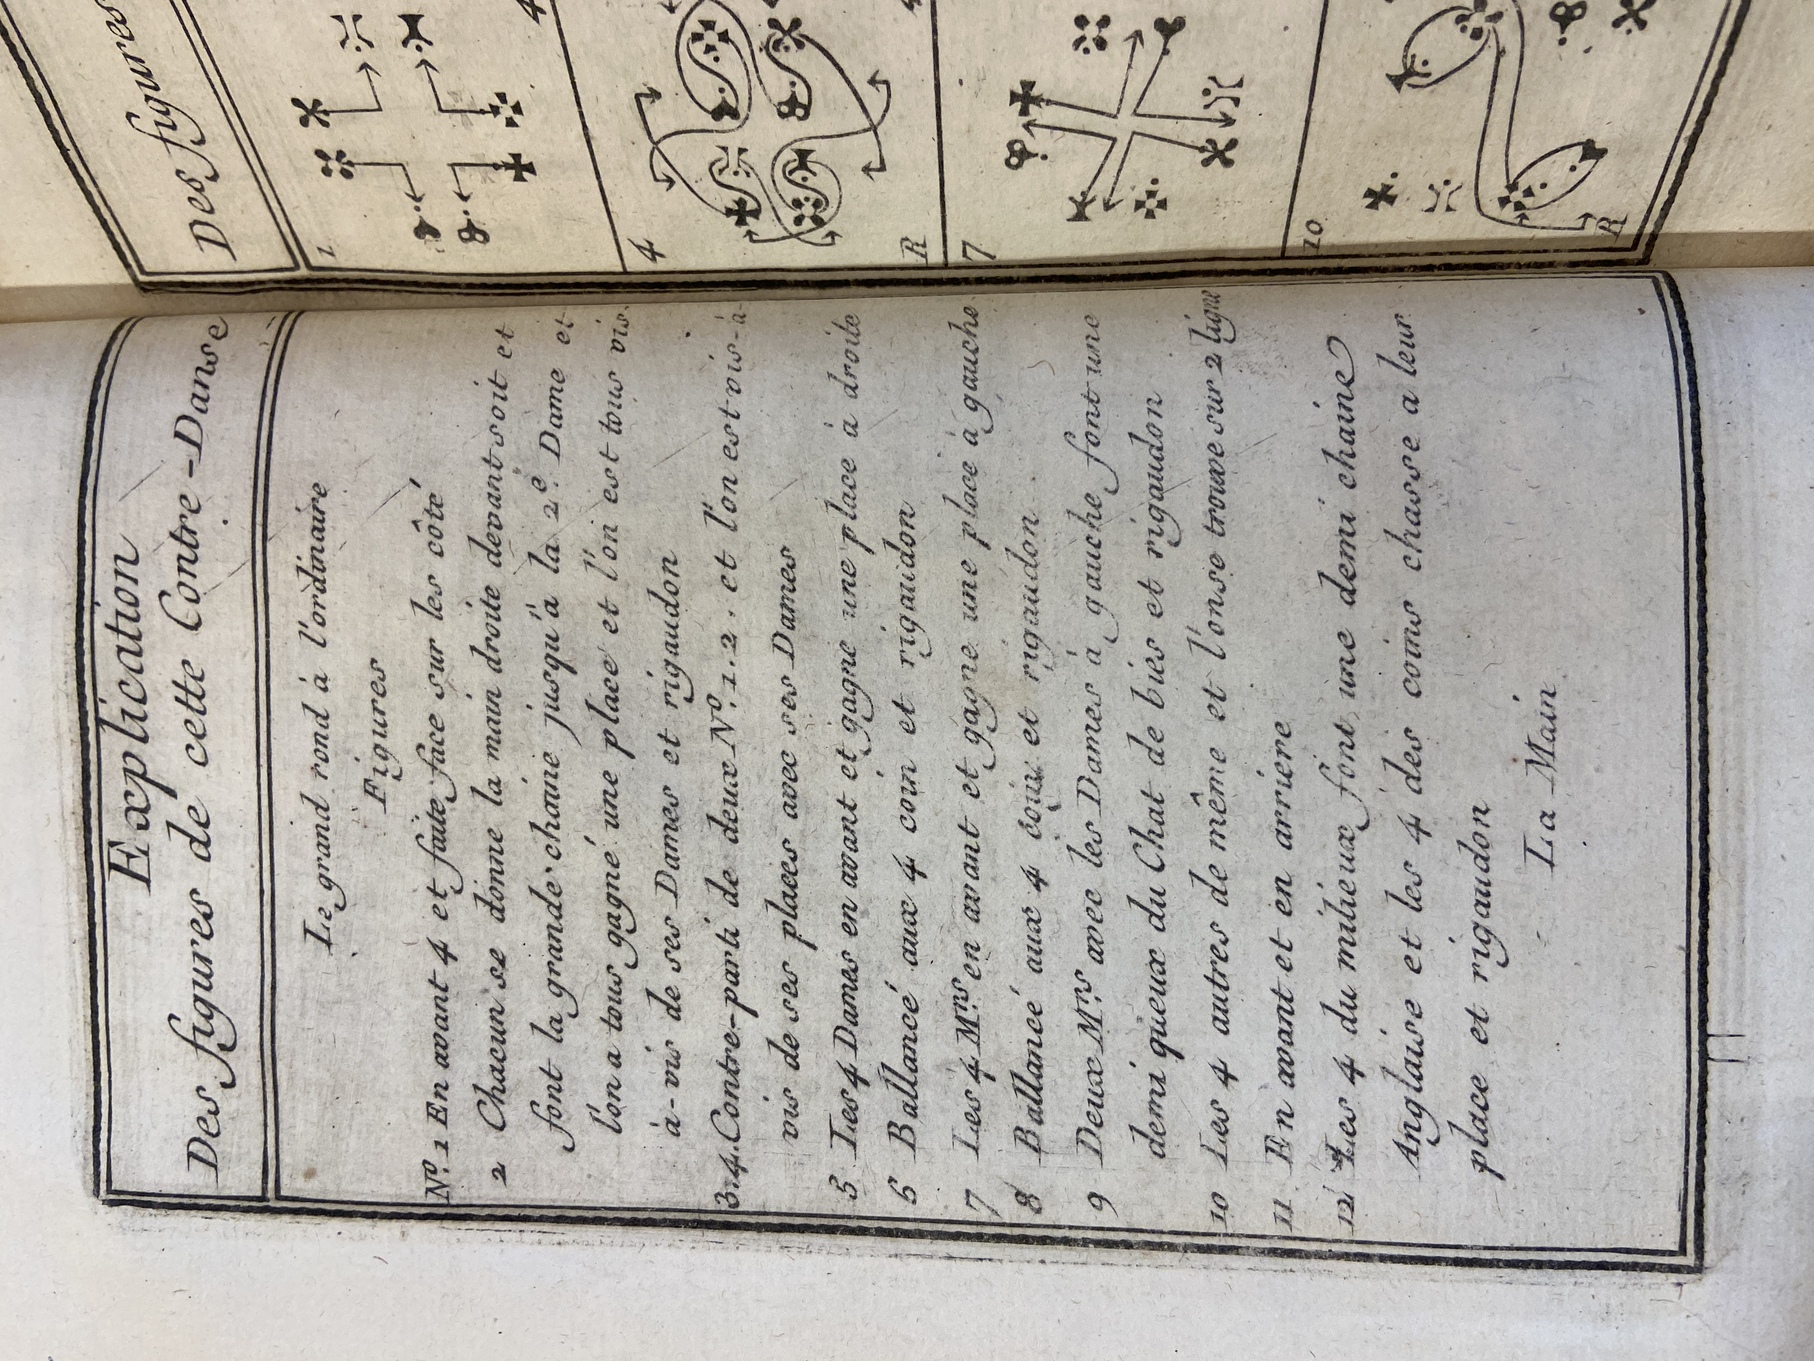 Explication
Des figures de cette Contre-Danse
Le grand rond à l'ordinaire
Figures
No. 1 En avant 4 et faite face sur les côté
2 Chacun se donne la main droite devant soit et
font la grande chaine jusqu'à la 2e. Dame et
l'on a tous gagné une place et l'on est tous vis
à-vis de ses Dames et rigaudon
3.4. Contre-parti de deux No. 1.2. et l'on est vis-à
vis de ses places avec ses Dames
5 Les 4 Dames en avant et gagne une place à droite
6 Ballancé aux 4 coin et rigaudon
7 Les 4 Mrs. en avant et gagne une place à gauche
8 Ballancé aux 4 coin et rigaudon
9 Deux Mrs. avec les Dames à gauche font une
demi queux du Chat de bies et rigaudon
10 Les 4 autres de même et l'on se trouve sur 2 ligne
11 En avant et en arriere
12 Les 4 du milieux font une demi chaine
Anglaise et les 4 des coins chasse a leur
place et rigaudon
La Main
Des figures
1
4
R
7
10
R